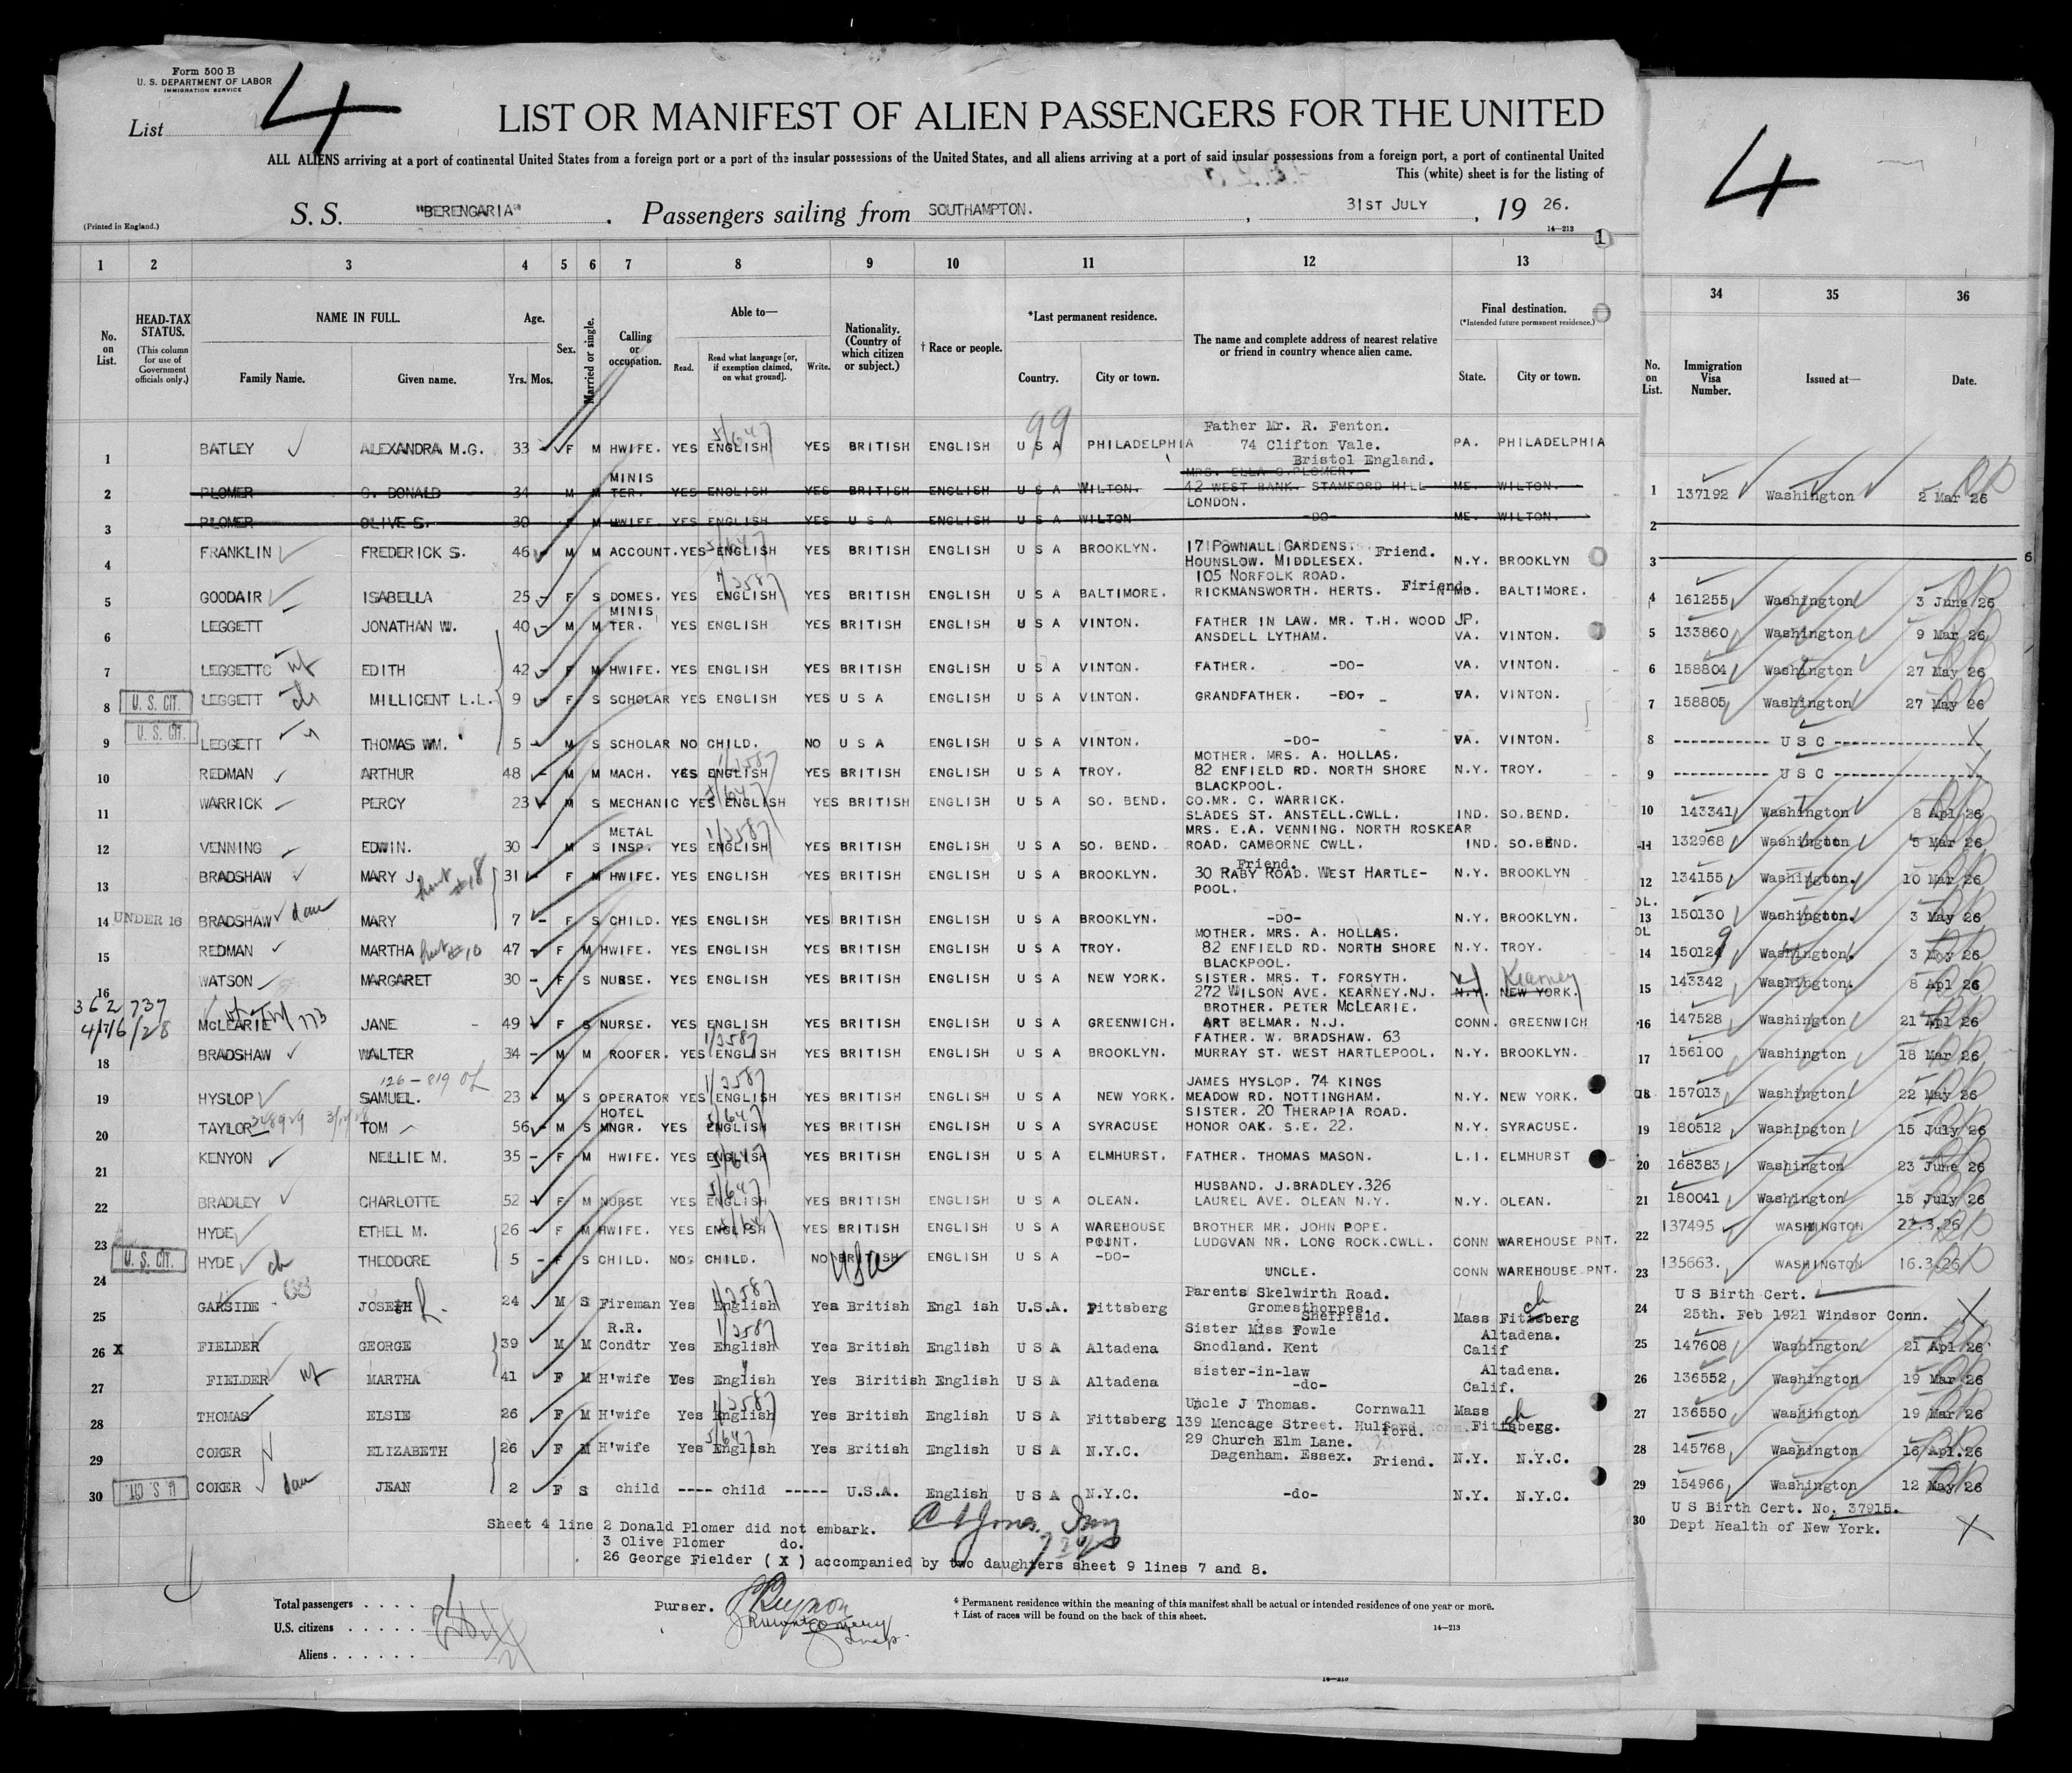 Form 500 B
U. S. DEPARTMENT OF LABOR
IMMIGRATION SERVICE
List 4
LIST OR MANIFEST OF ALIEN PASSENGERS FOR THE UNITED
ALL ALIENS arriving at a port of continental United States from a foreign port or a port of the insular possessions of the United States, and all aliens arriving at a port of said insular possessions from a foreign port, a port of continental United
This (white) sheet is for the listing of
S. S. "BERENGARIA". Passengers sailing from SOUTHAMPTON. , 31ST JULY , 19 26.
(Printed in England.)
14—213
1
1 2 3 4 5 6 7 8 9 10 11 12 13
No. on List.
HEAD-TAX STATUS.
(This column for use of Government officials only.)
NAME IN FULL.
Family Name. Given name.
Age.
Yrs. Mos.
Sex.
Married or single.
Calling or occupation.
Able to—
Read. Read what language [or, if exemption claimed, on what ground]. Write.
Nationality. (Country of which citizen or subject.)
† Race or people.
*Last permanent residence.
Country. City or town.
The name and complete address of nearest relative or friend in country whence alien came.
Final destination.
(*Intended future permanent residence.)
State. City or town.
99
1 BATLEY ALEXANDRA M.G. 33 F M HWIFE. YES ENGLISH YES BRITISH ENGLISH U S A PHILADELPHIA Father Mr. R. Fenton. 74 Clifton Vale. Bristol England. PA. PHILADELPHIA
2 PLOMER G. DONALD 34 M M MINISTER. YES ENGLISH YES BRITISH ENGLISH U S A WILTON. MRS. ELLA G.PLOMER. 42 WEST BANK. STAMFORD HILL LONDON. ME. WILTON.
3 PLOMER OLIVE S. 30 F M HWIFE. YES ENGLISH YES U S A ENGLISH U S A WILTON -DO- ME. WILTON.
4 FRANKLIN FREDERICK S. 46 M M ACCOUNT. YES ENGLISH YES BRITISH ENGLISH U S A BROOKLYN. 17 POWNALL GARDENS. HOUNSLOW. MIDDLESEX. Friend. N.Y. BROOKLYN
5 GOODAIR ISABELLA 25 F S DOMES. YES ENGLISH YES BRITISH ENGLISH U S A BALTIMORE. 105 NORFOLK ROAD. RICKMANSWORTH. HERTS. Firiend. MD. BALTIMORE.
6 LEGGETT JONATHAN W. 40 M M MINISTER. YES ENGLISH YES BRITISH ENGLISH U S A VINTON. FATHER IN LAW. MR. T.H. WOOD JP. ANSDELL LYTHAM. VA. VINTON.
7 LEGGETTC wf EDITH 42 F M HWIFE. YES ENGLISH YES BRITISH ENGLISH U S A VINTON. FATHER. -DO- VA. VINTON.
8 U. S. CIT. LEGGETT ch MILLICENT L.L. 9 F S SCHOLAR YES ENGLISH YES U S A ENGLISH U S A VINTON. GRANDFATHER. -DO- VA. VINTON.
9 U. S. CIT. LEGGETT THOMAS WM. 5 M S SCHOLAR NO CHILD. NO U S A ENGLISH U S A VINTON. -DO- VA. VINTON.
10 REDMAN ARTHUR 48 M M MACH. YES ENGLISH YES BRITISH ENGLISH U S A TROY. MOTHER. MRS. A. HOLLAS. 82 ENFIELD RD. NORTH SHORE BLACKPOOL. N.Y. TROY.
11 WARRICK PERCY 23 M S MECHANIC YES ENGLISH YES BRITISH ENGLISH U S A SO. BEND. CO.MR. C. WARRICK. SLADES ST. ANSTELL.CWLL. IND. SO.BEND.
12 VENNING EDWIN. 30 M S METAL INSP. YES ENGLISH YES BRITISH ENGLISH U S A SO. BEND. MRS. E.A. VENNING. NORTH ROSKEAR ROAD. CAMBORNE CWLL. IND. SO.BEND.
13 BRADSHAW MARY J. 31 F M HWIFE. YES ENGLISH YES BRITISH ENGLISH U S A BROOKLYN. Friend. 30 RABY ROAD. WEST HARTLE-POOL. N.Y. BROOKLYN
14 UNDER 16 BRADSHAW dau MARY 7 F S CHILD. YES ENGLISH YES BRITISH ENGLISH U S A BROOKLYN. -DO- N.Y. BROOKLYN.
15 REDMAN MARTHA 47 F M HWIFE. YES ENGLISH YES BRITISH ENGLISH U S A TROY. MOTHER. MRS. A. HOLLAS. 82 ENFIELD RD. NORTH SHORE BLACKPOOL. N.Y. TROY.
16 WATSON MARGARET 30 F S NURSE. YES ENGLISH YES BRITISH ENGLISH U S A NEW YORK. SISTER. MRS. T. FORSYTH. 272 WILSON AVE. KEARNEY.NJ. N.Y. NEW YORK. Kearney
362 737
4/16/28 McLEARIE JANE 49 F S NURSE. YES ENGLISH YES BRITISH ENGLISH U S A GREENWICH. BROTHER. PETER McLEARIE. ART BELMAR. N.J. CONN. GREENWICH
18 BRADSHAW WALTER 34 M M ROOFER. YES ENGLISH YES BRITISH ENGLISH U S A BROOKLYN. FATHER. W. BRADSHAW. 63 MURRAY ST. WEST HARTLEPOOL. N.Y. BROOKLYN.
126 - 819
19 HYSLOP SAMUEL. 23 M S OPERATOR YES ENGLISH YES BRITISH ENGLISH U S A NEW YORK. JAMES HYSLOP. 74 KINGS MEADOW RD. NOTTINGHAM. N.Y. NEW YORK.
20 TAYLOR TOM 56 M S HOTEL MNGR. YES ENGLISH YES BRITISH ENGLISH U S A SYRACUSE SISTER. 20 THERAPIA ROAD. HONOR OAK. S.E. 22. N.Y. SYRACUSE.
21 KENYON NELLIE M. 35 F M HWIFE. YES ENGLISH YES BRITISH ENGLISH U S A ELMHURST. FATHER. THOMAS MASON. L.I. ELMHURST
22 BRADLEY CHARLOTTE 52 F M NURSE YES ENGLISH YES BRITISH ENGLISH U S A OLEAN. HUSBAND. J.BRADLEY.326 LAUREL AVE. OLEAN N.Y. N.Y. OLEAN.
23 HYDE ETHEL M. 26 F M HWIFE. YES ENGLISH YES BRITISH ENGLISH U S A WAREHOUSE POINT. BROTHER MR. JOHN POPE. LUDGVAN NR. LONG ROCK.CWLL. CONN WAREHOUSE PNT.
24 U. S. CIT. HYDE ch THEODORE 5 F S CHILD. NO CHILD. NO BRITISH USA ENGLISH U S A -DO- UNCLE. CONN WAREHOUSE PNT.
25 GARSIDE JOSEPH 24 M S Fireman Yes English Yes British Engl ish U.S.A. Fittsberg Parents Skelwirth Road. Gromesthorpes. Sheffield. Mass Fittsberg ch
26 X FIELDER GEORGE 39 M M R.R. Condtr Yes English Yes British English U S A Altadena Sister Miss Fowle Snodland. Kent Altadena. Calif
27 FIELDER wf MARTHA 41 F M H'wife Yes English Yes Biritish English U S A Altadena sister-in-law -do- Altadena. Calif.
28 THOMAS ELSIE 26 F M H'wife Yes English Yes British English U S A Fittsberg Uncle J Thomas. Cornwall 139 Mencage Street. Hulford. Mass Fittsbegg. ch
29 COKER ELIZABETH 26 F M H'wife Yes English Yes British English U S A N.Y.C. 29 Church Elm Lane. Dagenham. Essex. Friend. N.Y. N.Y.C.
30 U. S. CIT. COKER dau JEAN 2 F S child ---- child ----- U.S.A. English U S A N.Y.C. -do- N.Y. N.Y.C.
Sheet 4 line 2 Donald Plomer did not embark.
3 Olive Plomer do.
26 George Fielder ( X ) accompanied by two daughters sheet 9 lines 7 and 8.
Total passengers . . . .
U.S. citizens . . . . .
Aliens . . . . . .
Purser.
* Permanent residence within the meaning of this manifest shall be actual or intended residence of one year or more.
† List of races will be found on the back of this sheet.
14—213
4
34 35 36
No. on List.
Immigration Visa Number. Issued at— Date.
1 137192 Washington 2 Mar 26
2
3
6
4 161255 Washington 3 June 26
5 133860 Washington 9 Mar 26
6 158804 Washington 27 May 26
7 158805 Washington 27 May 26
8 ------------ U S C ------------ X
9 ------------ U S C ------------ X
10 143341 Washington 8 Apl 26
11 132968 Washington 5 Mar 26
12 134155 Washington. 10 Mar 26
13 150130 Washington. 3 May 26
14 150124 9 Washington. 3 May 26
15 143342 Washington. 8 Apl 26
16 147528 Washington 21 Apl 26
17 156100 Washington 18 Mar 26
18 157013 Washington 22 May 26
19 180512 Washington 15 July 26
20 168383 Washington 23 June 26
21 180041 Washington 15 July 26
22 137495 WASHINGTON 22.3.26
23 135663. WASHINGTON 16.3.26
24 U S Birth Cert. 25th. Feb 1921 Windsor Conn. X
25 147608 Washington 21 Apl 26
26 136552 Washington 19 Mar 26
27 136550 Washington 19 Mar 26
28 145768 Washington 16 Apl.26
29 154966 Washington 12 May 26
30 U S Birth Cert. No. 37915. Dept Health of New York. X